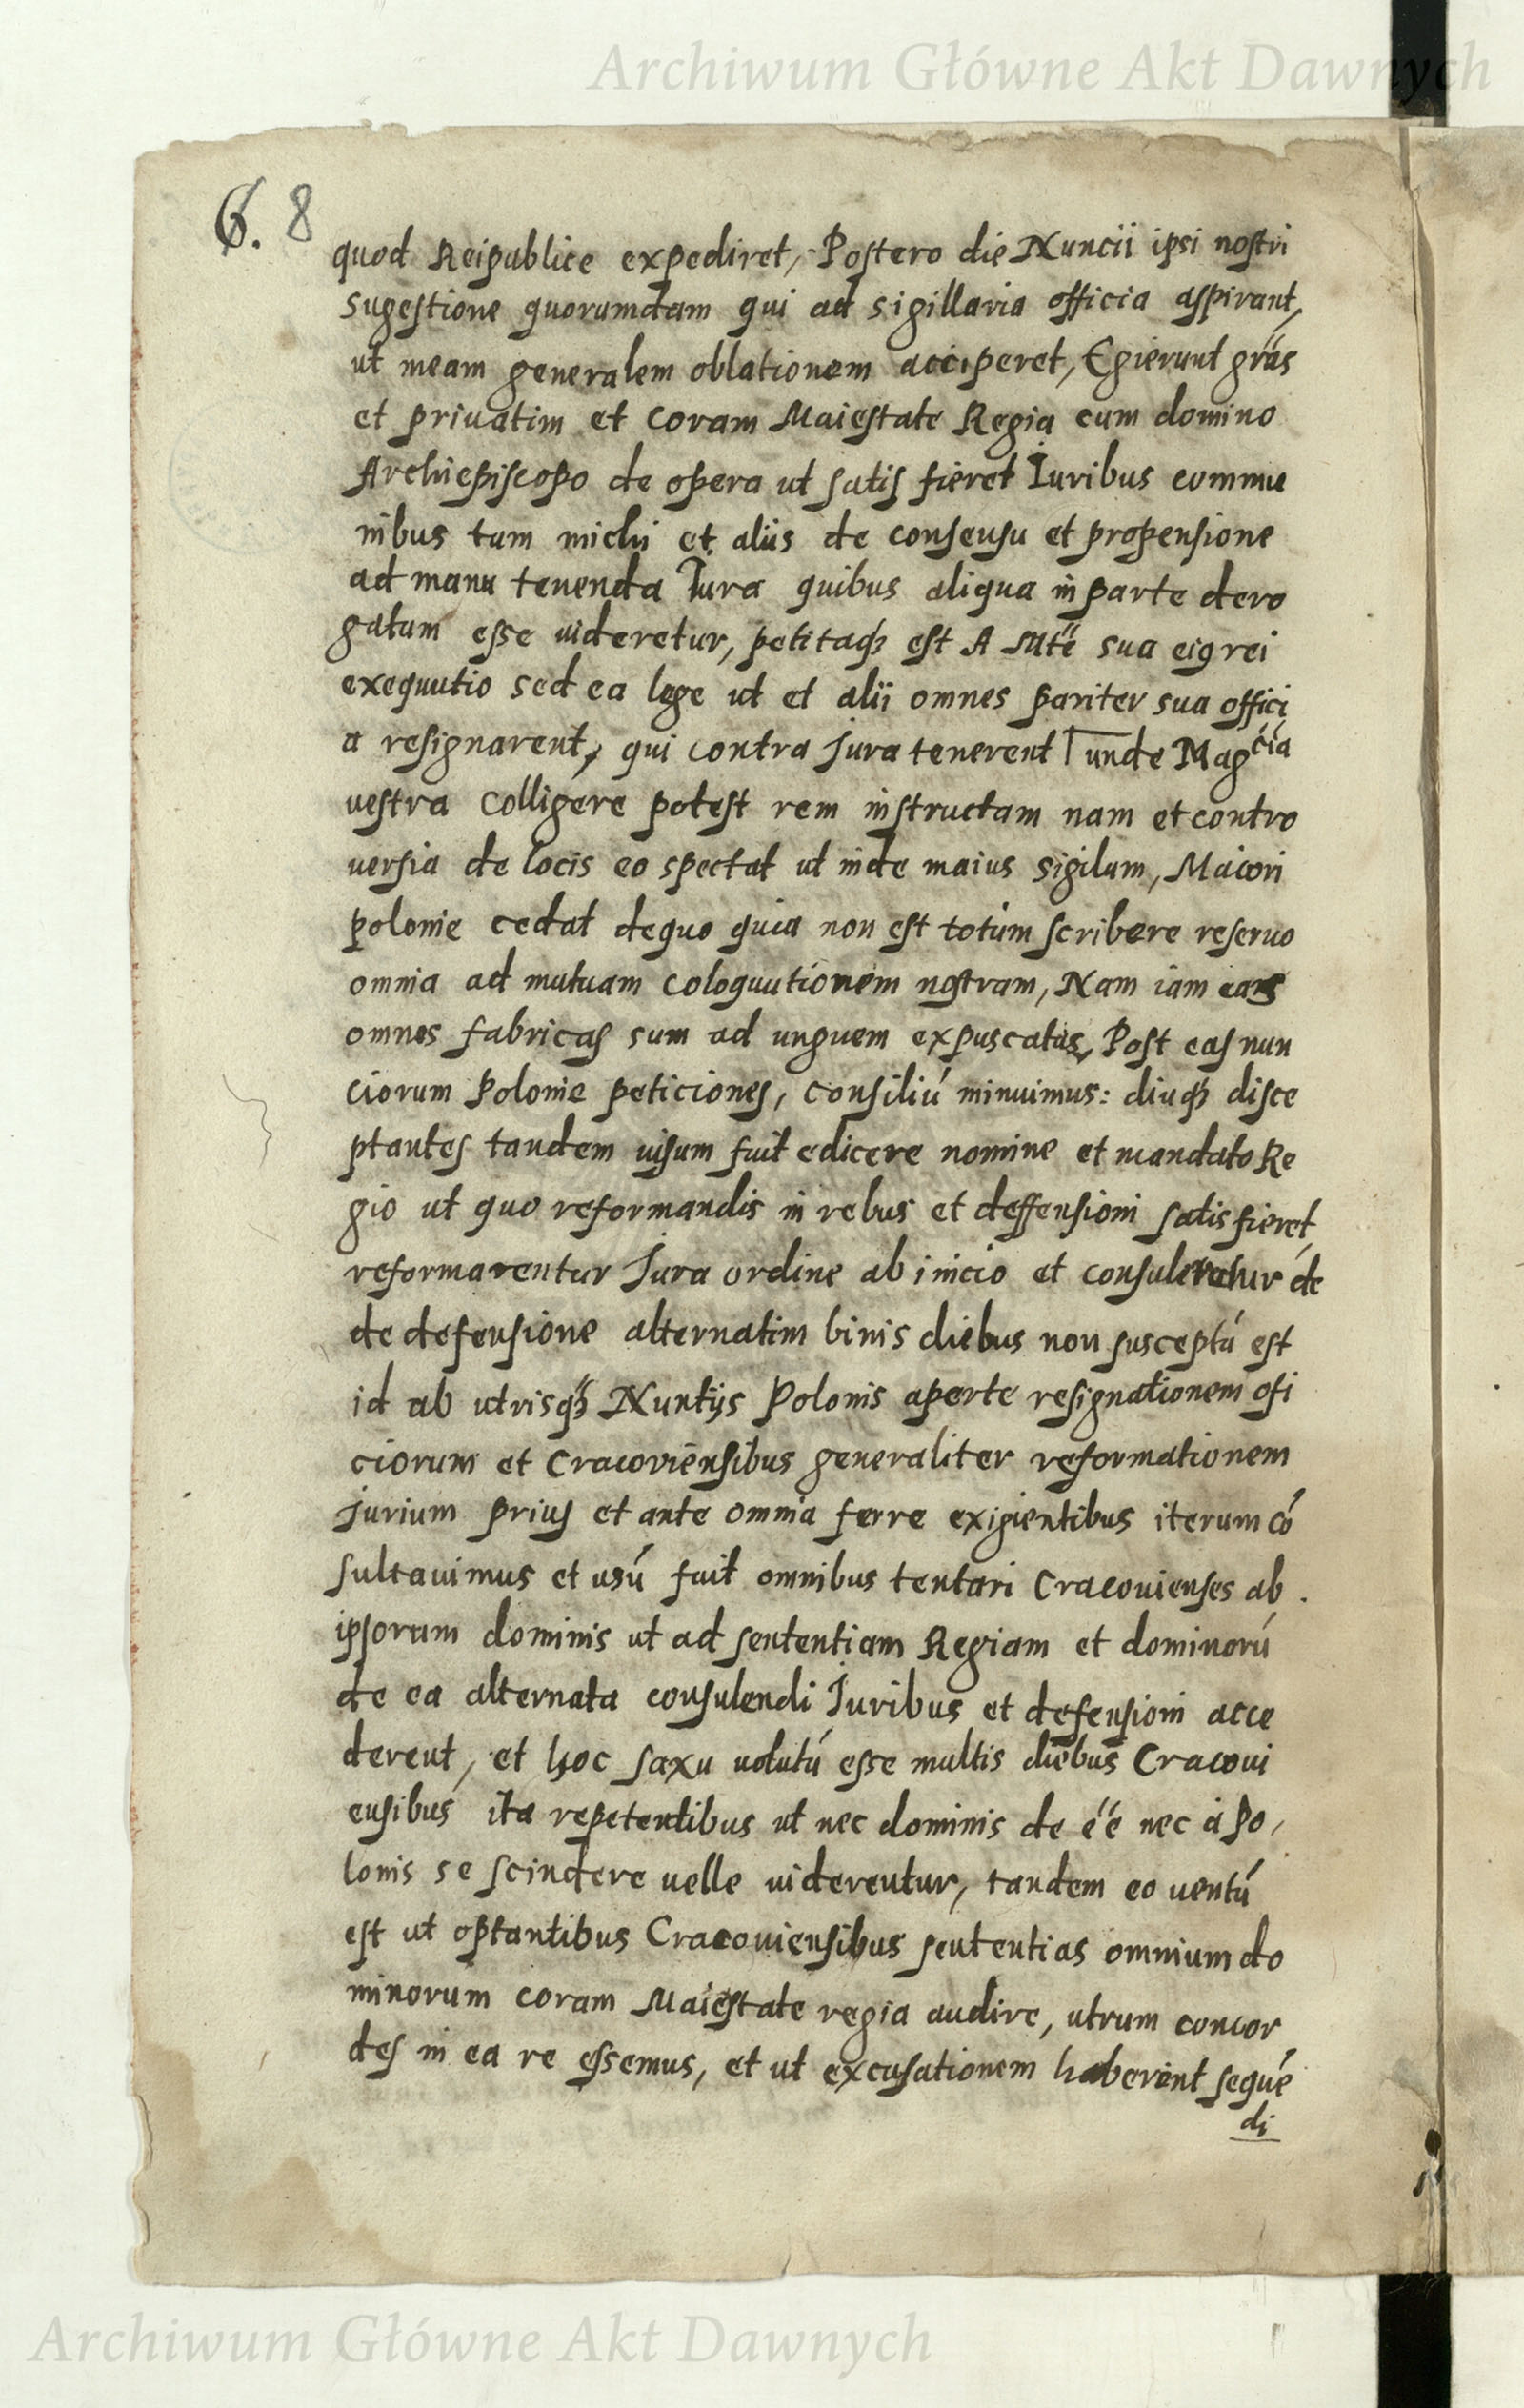 Archiwum Główne Akt Dawnych
6. 8
quod Reipublice expediret, Postero die Nuncii ipsi nostri
sugestione quorumdam qui ad sigillaria officia aspirant,
ut meam generalem oblationem acciperet, Egierunt gras
et priuatim et coram Maiestate Regia cum domino
Archiepiscopo de opera ut satis fieret Iuribus commu
nibus tum michi et aliis de consensu et propensione
ad manu tenenda Iura quibus aliqua in parte dero
gatum esse uideretur, petitaqȝ est A Mte sua eiq rei
exequutio sed ea lege ut et alii omnes pariter sua offici
a resignarent, qui contra Jura tenerent unde Magcia
uestra colligere potest rem instructam nam et contro
uersia de locis eo spectat ut inde maius sigilum, Maiori
polonie cedat dequo quia non est totum scribere reseruo
omnia ad mutuam coloquutionem nostram, Nam iam eas
omnes fabricas sum ad unguem expuscatas, Post eas nun
ciorum Polonie peticiones, consiliú minuimus: diuqȝ disce
ptantes tandem uisum fuit edicere nomine et mandato Re
gio ut quo reformandis in rebus et deffensioni satis fieret,
reformarentur Jura ordine ab inicio et consuleretur de
de defensione alternatim binis diebus non susceptú est
id ab utrisqȝ Nuntijs Polonis aperte resignationem ofi
ciorum et Cracoviensibus generaliter reformationem
Jurium prius et ante omnia ferre exigientibus iterum có
sultauimus et usú fuit omnibus tentari Cracouienses ab
ipsorum dominis ut ad sententiam Regiam et dominorú
de ea alternata consulendi Juribus et defensioni acce
derent, et hoc saxu uolutú esse multis diebus Cracoui
ensibus ita repetentibus ut nec dominis de éé nec à Po,
lonis se scindere uelle uiderentur, tandem eo uentú
est ut optantibus Cracouiensibus sententias omnium do
minorum coram Maiestate regia audire, utrum concor
des in ea re essemus, et ut excusationem haberent sequé
di
Archiwum Główne Akt Dawnych